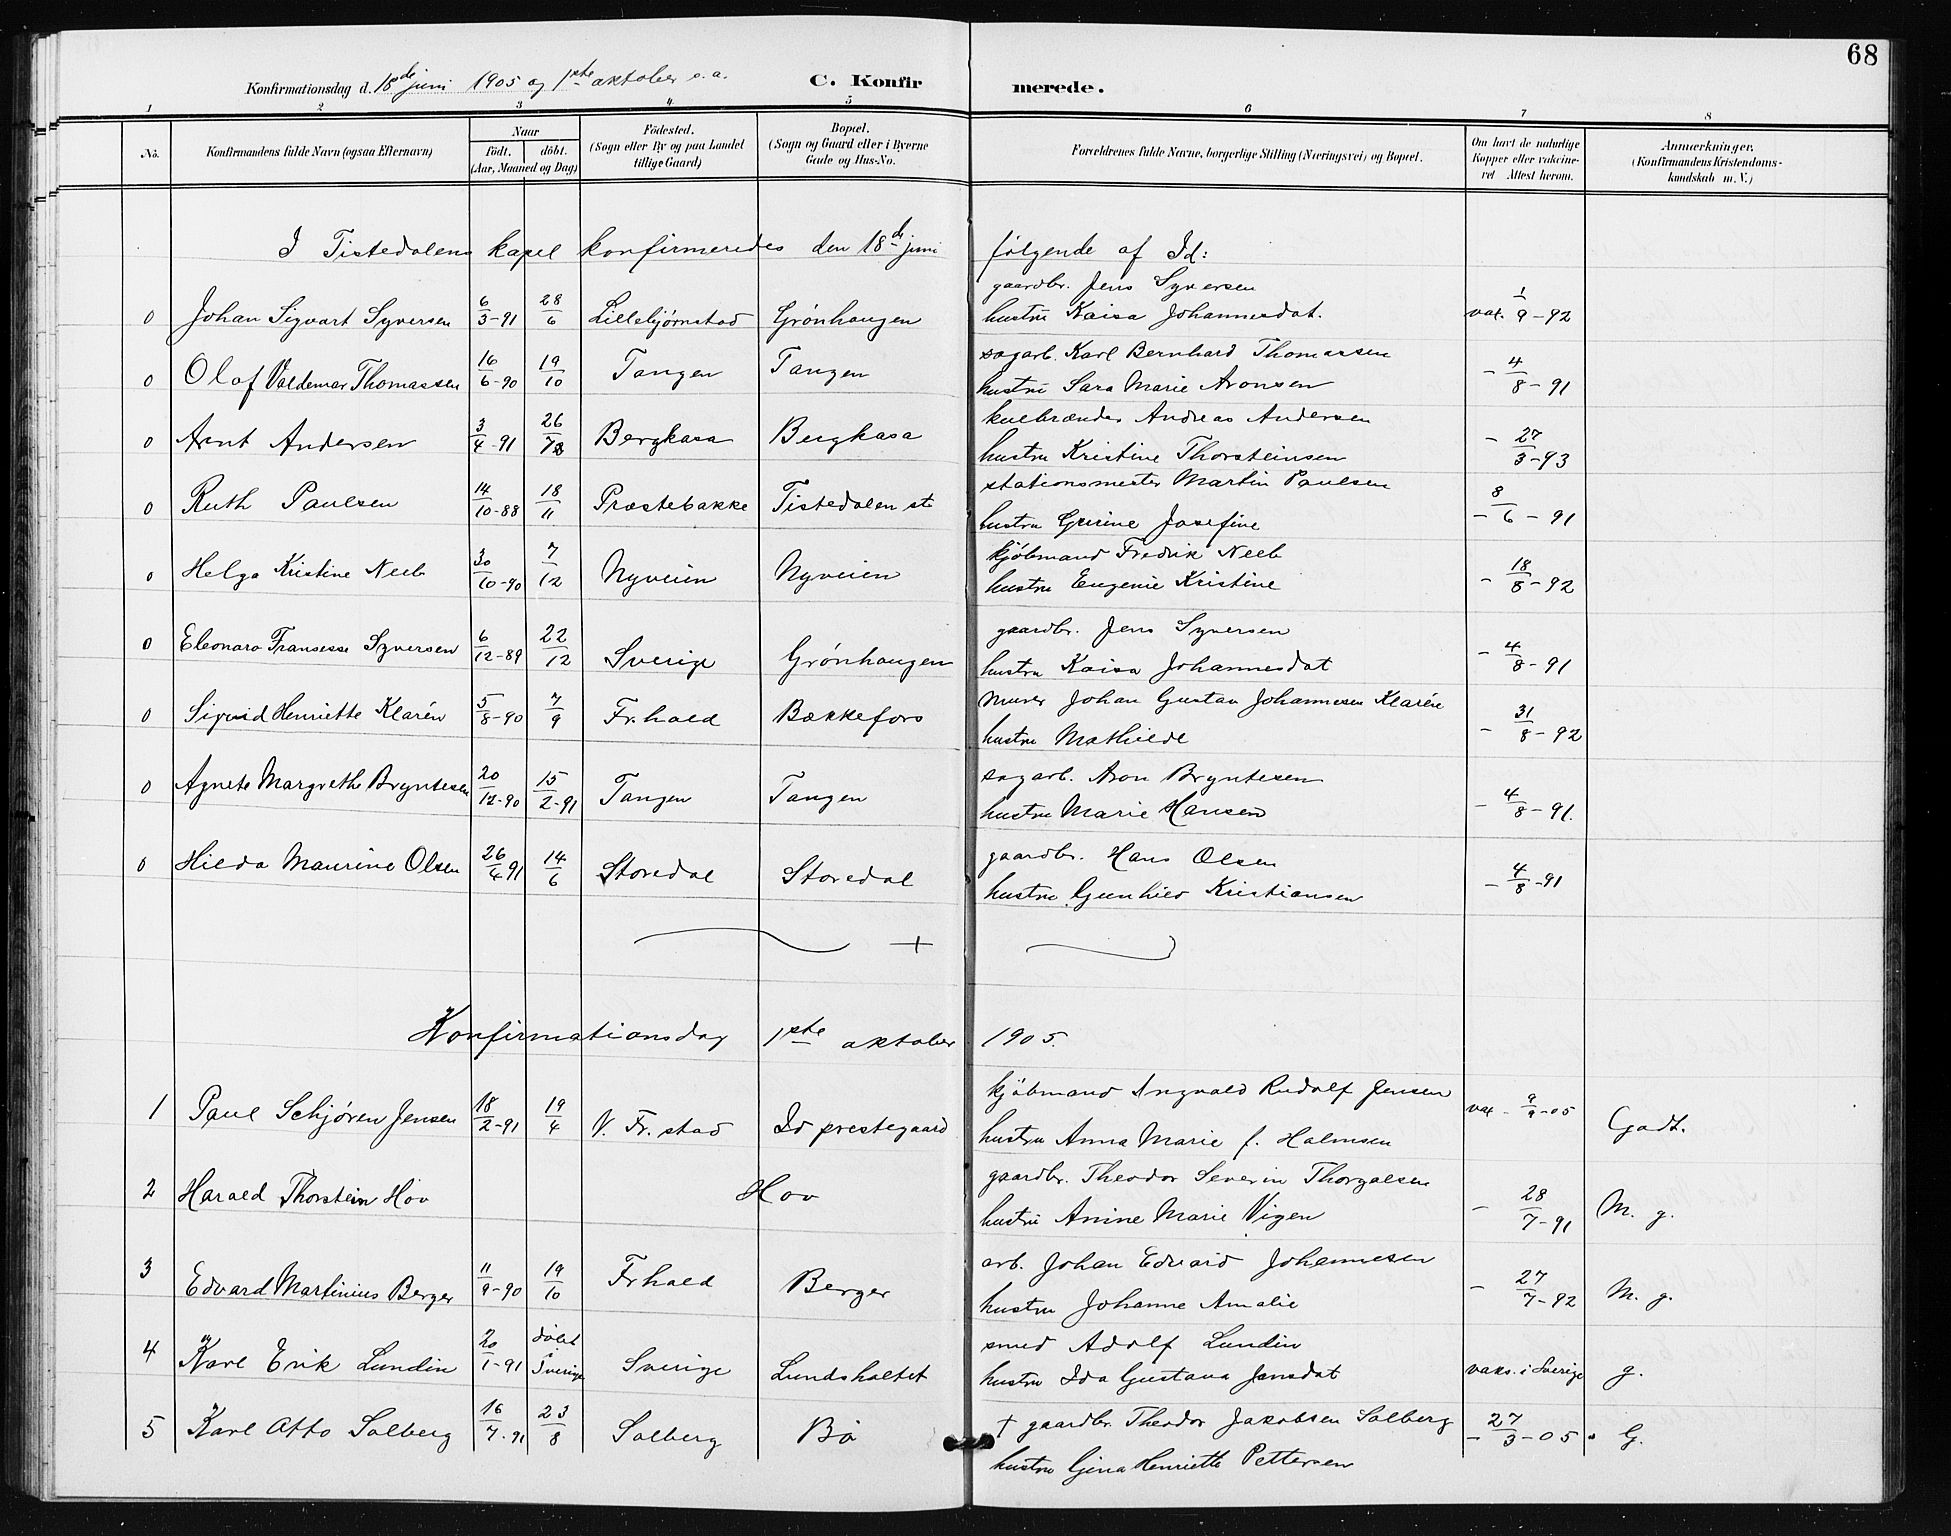 68
Konfirmationsdag d. 18de juni 1905 og 1ste oktober s. a. C. Konfirmerede.
1 2 3 4 5 6 7 8
No. Konfirmandens fulde Navn (ogsaa Efternavn) Naar født. døbt. (Aar, Maaned og Dag) Fødested. (Sogn eller By og paa Landet tillige Gaard) Bopæl. (Sogn og Gaard eller i Byerne Gade og Hus-No. Forældrenes fulde Navne, borgerlige Stilling (Næringsvei) og Bopæl. Om havt de naturlige Kopper eller vakcineret Attest herom. Anmærkninger. (Konfirmandens Kristendomskundskab m. V.)
I Tistedalens kapel konfirmeredes den 18de juni følgende af Id:
0 Johan Sigvart Syversen 6/3-91 28/6 Lillebjørnstad Grønhaugen gaardbr. Jens Syversen
hustru Kaisa Johannesdat. vax. 1/9-92
0 Olaf Valdemar Thomassen 16/6-90 19/10 Tangen Tangen sagarb. Karl Bernhard Thomassen
hustru Sara Marie Aronsen - 4/8-91
0 Arnt Andersen 3/4-91 26/7 Bergkasa Bergkasa kulbrænder Andreas Andersen
hustru Kristine Thorsteinsen - 27/3-93
0 Ruth Paulsen 14/10-88 18/11 Præstebakke Tistedalen st. stationsmester Martin Paulsen
hustru Gurine Josefine - 8/6-91
0 Helga Kristine Neeb 30/10-90 7/12 Nyveien Nyveien kjøbmand Fredrik Neeb
hustru Eugenie Kristine - 18/8-92
0 Eleonara Fransesse Syversen 6/12-89 22/12 Sverige Grønhaugen gaardbr. Jens Syversen
hustru Kaisa Johannesdat - 4/8-91
0 Sigrid Henriette Klarén 5/8-90 7/9 Fr.hald Bækkefors murer Johan Gustav Johannesen Klarén
hustru Mathilde - 31/8-92
0 Agnete Margreth Bryntesen 20/12-90 15/2-91 Tangen Tangen sagarb. Aron Bryntesen
hustru Marie Hansen - 4/8-91.
0 Hilda Maurine Olsen 26/4 91 14/6 Storedal Storedal gaardbr. Hans Olsen
hustru Gunhild Kristiansen - 4/8-91
Konfirmationsdag 1ste oktober 1905.
1 Paul Schjøren Jensen 18/2-91 19/4 V. Fr.stad Id prestegaard kjøbmand Ingvald Rudolf Jensen
hustru Anna Marie f. Holmsen vax - 9/9-05 Godt.
2 Harald Thorstein Hov Hov gaardbr. Theodor Severin Thorgalsen
hustru Anine Marie Vigen - 28/7-91 M. g.
3 Edvard Martinius Berger 11/9-90 19/10 Frhald Berger arb. Johan Edvard Johannesen
hustru Johanne Amalie - 27/7-92 M. g.
4 Karl Erik Lundin 20/1-91 døbt i Sverige Sverige Lundsholtet smed Adolf Lundin
hustru Ida Gustava Jansdat vaks. i Sverige g.
5 Karl Otto Solberg 16/7-91 23/8 Solberg Bø † gaardbr Theodor Jakobsen Solberg
hustru Gina Henriette Pettersen - 27/3-05 G.